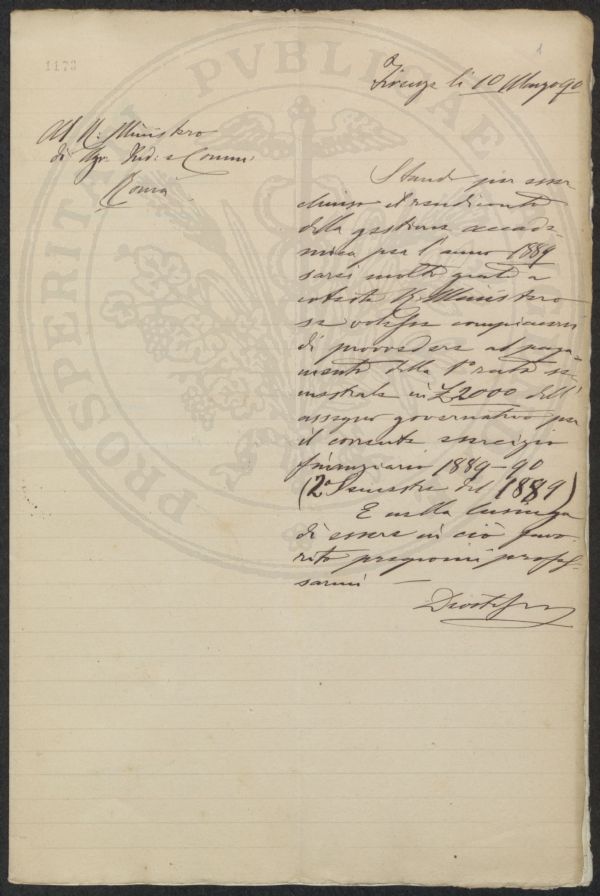 1173
1
Firenze lì 10 Marzo 90
Al R. Ministero
di Agr. Ind. e Comm.
Roma
Stando per esser
chiuso il rendiconto
della gestione accade-
mica per l'anno 1889
sarei molto grato a
cotesto R. Ministero
se volesse compiacersi
di provvedere al paga-
mento della 1a rata se-
mestrale in £2000 dell'
assegno governativo per
il corrente esercizio
finanziario 1889-90
(2o Semestre del 1889)
E nella lusinga
di essere in ciò favo-
rito pregiomi profes-
sarmi
PROSPERITATI PUBLICAE